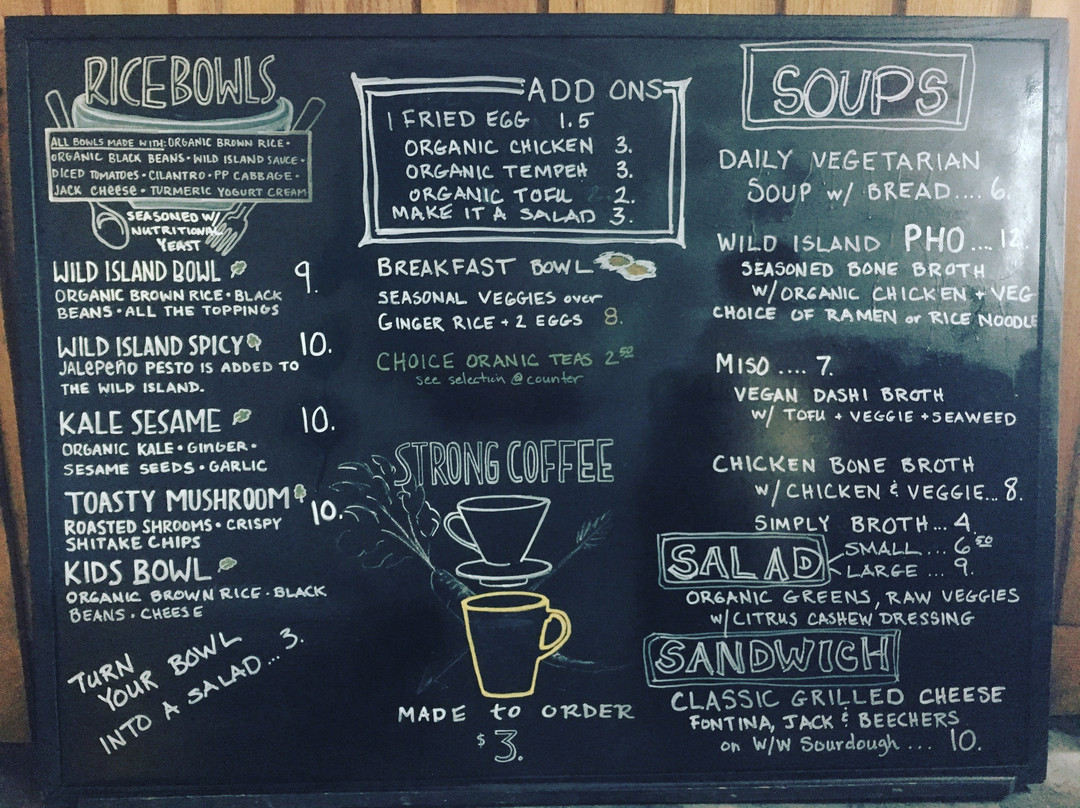 RICEBOWLS
ALL BOWLS MADE WITH: ORGANIC BROWN RICE •
ORGANIC BLACK BEANS • WILD ISLAND SAUCE •
DICED TOMATOES • CILANTRO • PP CABBAGE •
JACK CHEESE • TURMERIC YOGURT CREAM
SEASONED W/
NUTRITIONAL
YEAST
WILD ISLAND BOWL 9.
ORGANIC BROWN RICE • BLACK
BEANS • ALL THE TOPPINGS
WILD ISLAND SPICY 10.
JALEPEÑO PESTO IS ADDED TO
THE WILD ISLAND.
KALE SESAME 10.
ORGANIC KALE • GINGER •
SESAME SEEDS • GARLIC
TOASTY MUSHROOM 10.
ROASTED SHROOMS • CRISPY
SHITAKE CHIPS
KIDS BOWL
ORGANIC BROWN RICE • BLACK
BEANS • CHEESE
TURN
YOUR BOWL
INTO A SALAD... 3.
ADD ONS
1 FRIED EGG 1.5
ORGANIC CHICKEN 3.
ORGANIC TEMPEH 3.
ORGANIC TOFU 2.
MAKE IT A SALAD 3.
BREAKFAST BOWL
SEASONAL VEGGIES over
GINGER RICE + 2 EGGS 8.
CHOICE ORANIC TEAS 2 50
see selection @ counter
STRONG COFFEE
MADE to ORDER
$ 3.
SOUPS
DAILY VEGETARIAN
SOUP w/ BREAD.... 6.
WILD ISLAND PHO.... 12.
SEASONED BONE BROTH
W/ORGANIC CHICKEN + VEG
CHOICE OF RAMEN or RICE NOODLE
MISO .... 7.
VEGAN DASHI BROTH
W/ TOFU + VEGGIE + SEAWEED
CHICKEN BONE BROTH
W/ CHICKEN & VEGGIE... 8.
SIMPLY BROTH... 4.
SALAD
SMALL .... 6 50
LARGE ... 9.
ORGANIC GREENS, RAW VEGGIES
W/CITRUS CASHEW DRESSING
SANDWICH
CLASSIC GRILLED CHEESE
FONTINA, JACK & BEECHERS
on W/W Sourdough ... 10.